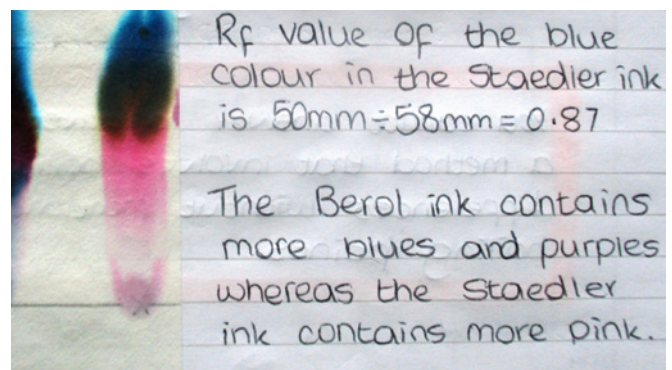 Rf value of the blue
colour in the Staedler ink
is 50mm÷58mm = 0.87
The Berol ink contains
more blues and purples
whereas the Staedler
ink contains more pink.